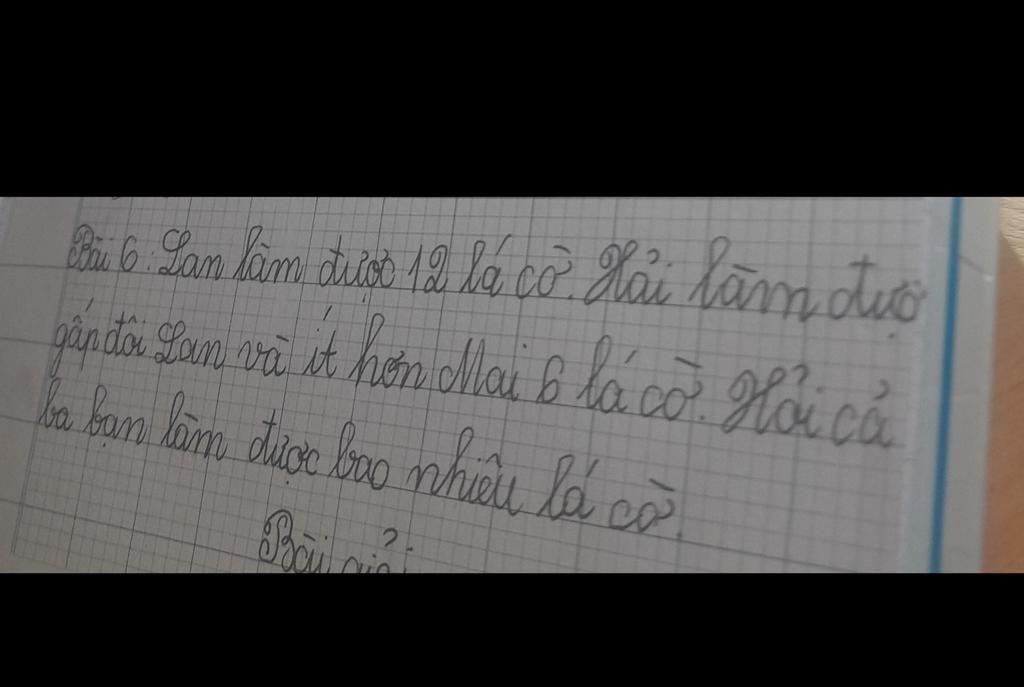 Bài 6: Lan làm được 12 lá cờ. Hải làm đượ
gấp đôi Lan và ít hơn Mai 6 lá cờ. Hỏi cả
ba bạn làm được bao nhiêu lá cờ.
Bài giải